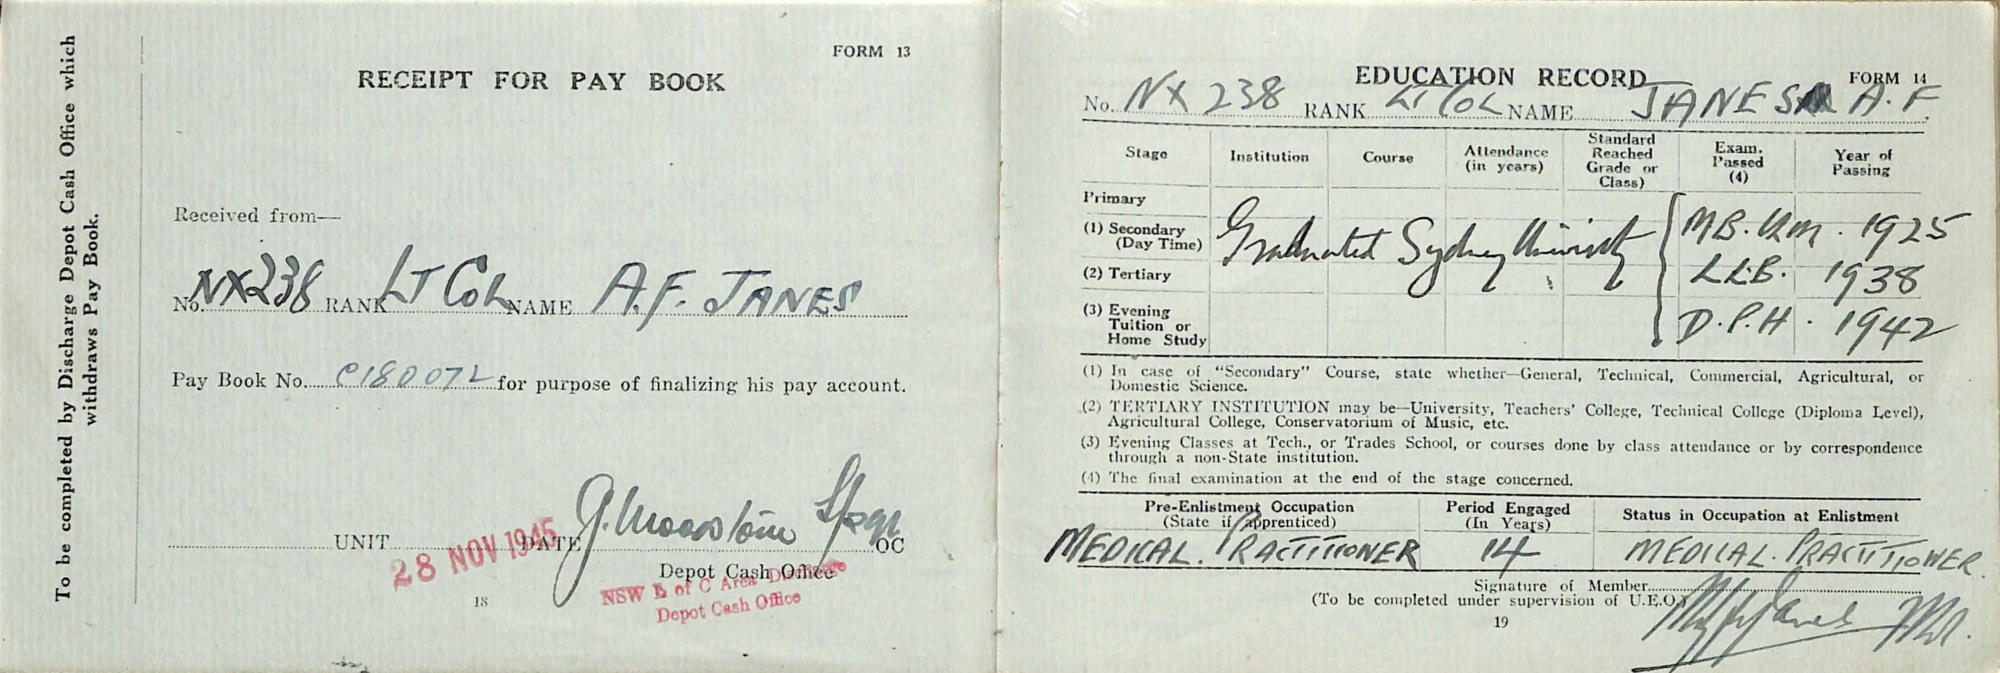 To be completed by Discharge Depot Cash Office which
withdraws Pay Book.
FORM 13
RECEIPT FOR PAY BOOK
Received from—
No. NX238 RANK LT COL NAME A.F. JANES
Pay Book No. C180072 for purpose of finalizing his pay account.
UNIT DATE OC
28 NOV 1945
Depot Cash Office
NSW L of C Area Discharge
Depot Cash Office
18
EDUCATION RECORD FORM 14
No. NX 238 RANK LT COL NAME JANES A. F
Stage Institution Course Attendance (in years) Standard Reached Grade or Class) Exam. Passed (4) Year of Passing
Primary
(1) Secondary (Day Time)
(2) Tertiary
(3) Evening Tuition or Home Study
Graduated Sydney University
M.B. 1925
L.L.B. 1938
D.P.H. 1942
(1) In case of "Secondary" Course, state whether—General, Technical, Commercial, Agricultural, or
Domestic Science.
(2) TERTIARY INSTITUTION may be—University, Teachers' College, Technical College (Diploma Level),
Agricultural College, Conservatorium of Music, etc.
(3) Evening Classes at Tech., or Trades School, or courses done by class attendance or by correspondence
through a non-State institution.
(4) The final examination at the end of the stage concerned.
Pre-Enlistment Occupation (State if apprenticed) Period Engaged (In Years) Status in Occupation at Enlistment
MEDICAL. PRACTITIONER 14 MEDICAL. PRACTITIONER.
Signature of Member
(To be completed under supervision of U.E.O.)
19